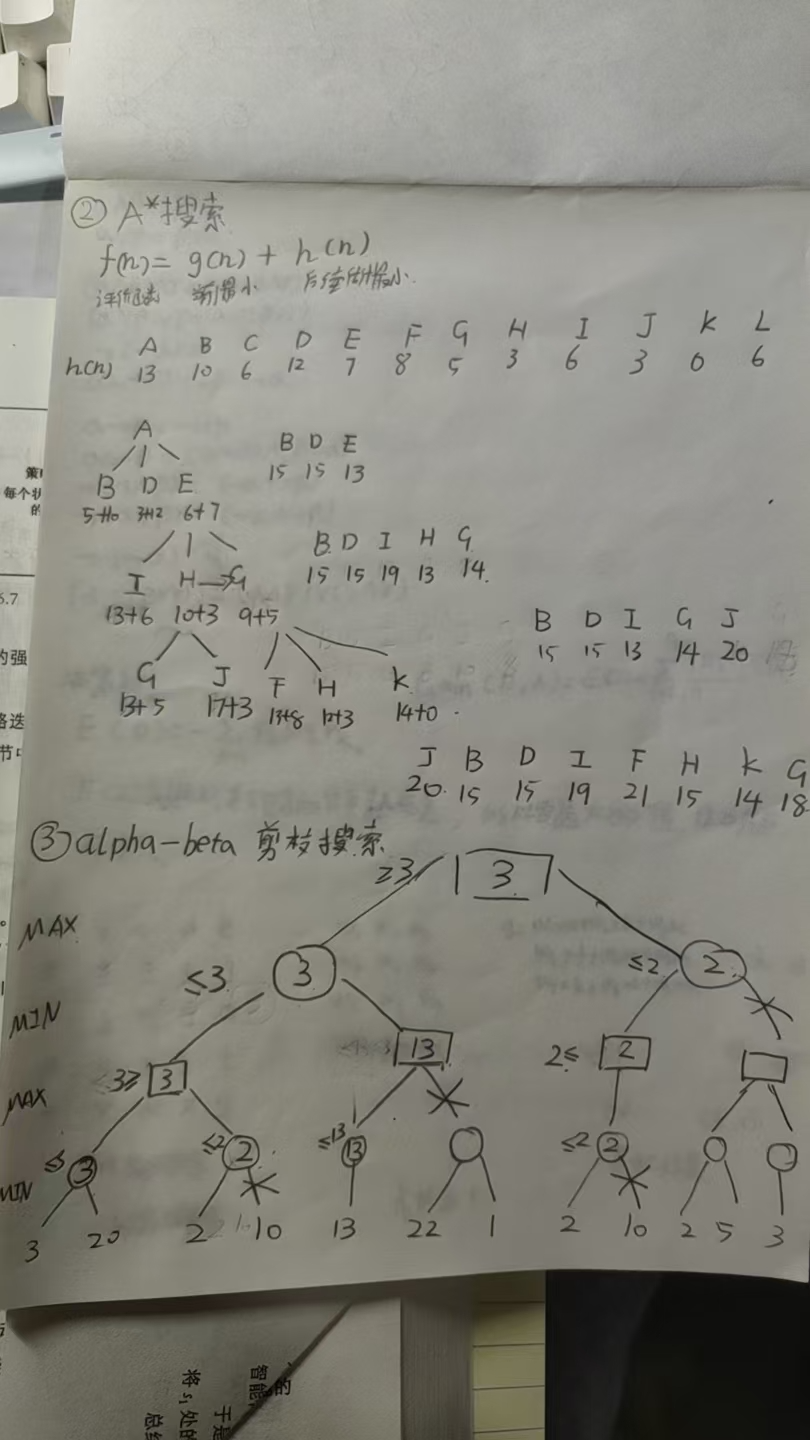 ② A*搜索
f(n)= g(n) + h(n)
A B C D E F G H I J K L
h(n) 13 10 6 12 7 8 5 3 6 3 0 6
A
B D E
15 15 13
B D E
5+10 3+12 6+7
B D I H G
15 15 19 13 14
I H G
13+6 10+3 9+5
B D I G J
15 15 13 14 20
G J F H K
13+5 17+3 13+8 12+3 14+0
J B D I F H K G
20 15 15 19 21 15 14 18
③ alpha-beta 剪枝搜索
≥3 3
MAX
≤3 3 ≤2 2
MIN
3≥ 3 13 2≤ 2
MAX
≤3 3 ≤2 2 ≤13 13 ≤2 2
MIN
3 20 2 10 13 22 1 2 10 2 5 3
策
每个状
的
6.7
的强
各迭
节中
的
智能
于是
将 s₁ 处的
总